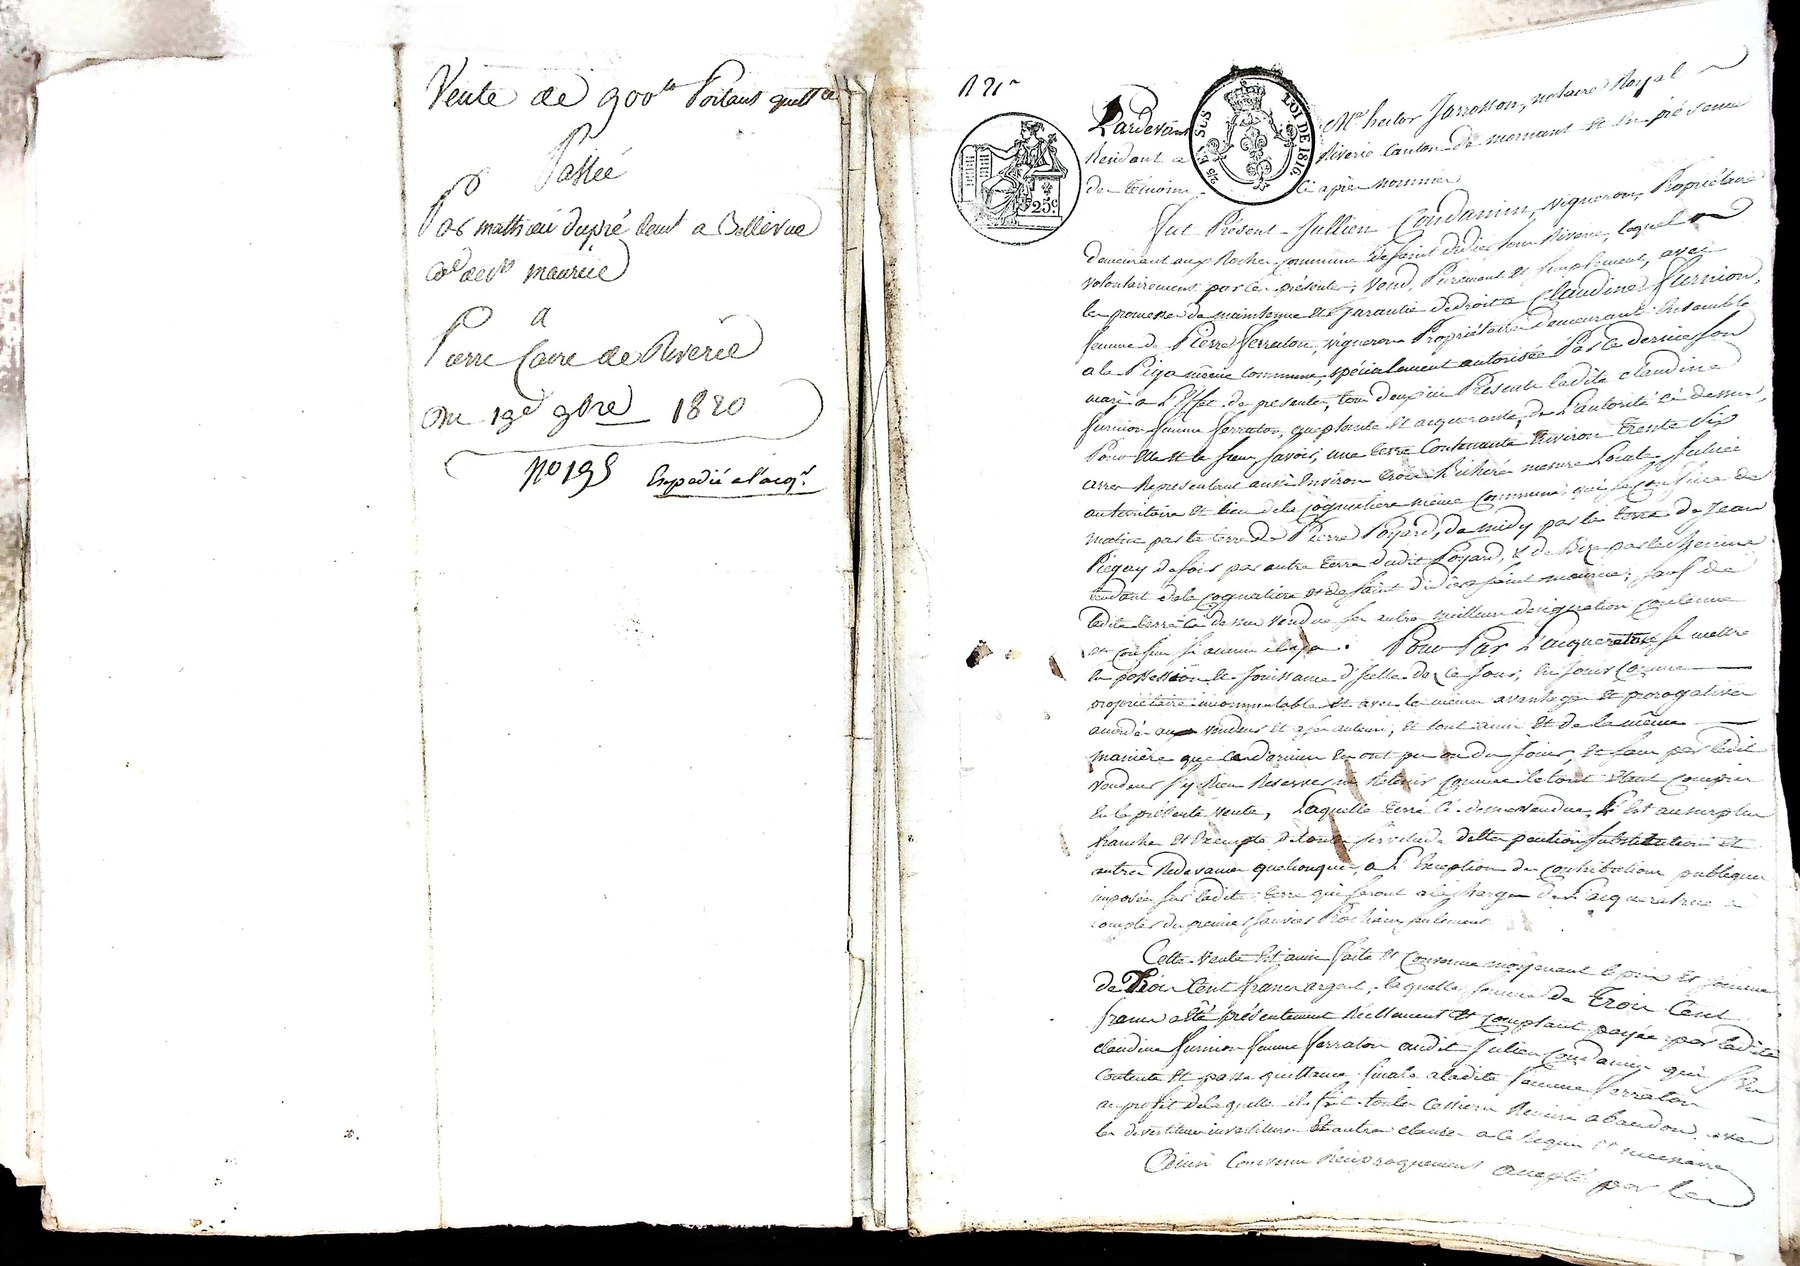 Vente de 900 Portant quittce
Passée
Par mathieu dupré demt a Bellevue
Cne de st maurice
a
Pierre Caire de Riverie
Du 19e 9bre 1820
No 195 Expedié a l'acqr.
Pardevant Me hector Jarrosson, notaire Royal
EN SUS
LOI DE 1816
25c
Résidant a Riverie canton de mornant Et En présence
de témoins ci après nommés
fut Présent Jullien Condamin, vigneron, Propriétaire
demeurant aux Roches commune de saint didier sous Riverie, lequel
volontairement par ces présentes, vend, Purement Et simplement, avec
les promesses de maintenue et Garantie de droit a Claudine furnion,
femme de Pierre ferraton, vigneron Propriétaires demeurant Ensemble
a la Piga même commune, spécialement autorisée Par ce dernier son
mari a l'Effet des presentes, tous deux ici Présents ladite claudine
furnion femme ferraton, acceptante Et acquerante, de l'autorité ci dessus,
Pour Elle Et les siens savoir, une terre Contenante Environ trente six
ares Représentant aussi Environ trois Bicherées mesure Locale, située
au territoire Et lieu de la Cognatiere même commune, qui se confine de
matin par la terre de Pierre Poyard, de midy par la terre de Jean
Piegay de soir par autre terre dudit Poyard, & de Bize par le chemin
tendant de la Cognatiere Et de saint didier a saint maurice, sauf de
ladite terre ci dessus vendue ses autres meilleurs désignation contenue
et confins si aucun il y a. Pour Par l'acqueratrice se mettre
En possession Et Jouissance d'Icelle de Ce Jour, En Jouir Comme
propriétaire incommutable Et avec les mêmes avantages Et prerogatives
accordés aux vendeur Et a ses auteurs, Et tout ainsi Et de la même
manière que ces derniers En ont pu ou du Jouir, Et sans par ledit
vendeur s'y Rien Reserver ni Retenir comme le tout Etant Compris
En la présente vente, Laquelle terre ci-dessus vendue, Est au surplus
franche Et Exempte de toutes servitudes dettes pention substitution Et
autres Redevances quelconques, a l'Exception des contributions publiques
imposées sur ladite terre qui seront a la charge de l'acqueratrice a
compter du premier Janvier Prochain seulement
Cette vente Est ainsi faite Et Convenue moyennant le prix Et somme
de Trois Cent francs argent, laquelle somme de Trois Cent
francs a Eté présentement Réellement Et comptant payée par ladite
claudine furnion femme ferraton audit Jullien Condamin qui s'en
contente Et passe quittance finale a ladite femme ferraton
au profit de laquelle il fait toutes cessions Remises abandon, avec
les devestitures investitures Et autres clauses a ce Requises Et necessaires
Ainsi Convenu Réciproquement accepté par les